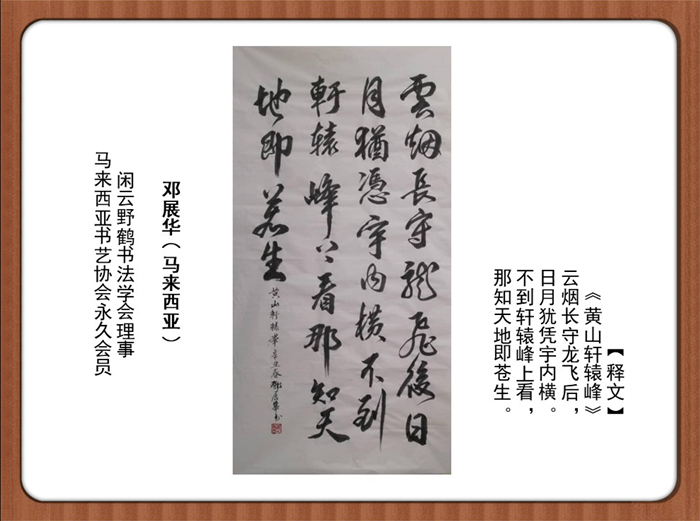 【释文】
《黄山轩辕峰》
云烟长守龙飞后，
日月犹凭宇内横。
不到轩辕峰上看，
那知天地即苍生。
雲烟長守龍飛後日
月猶憑宇内横不到
軒辕峰上看那知天
地即蒼生
黄山軒辕峯辛丑春鄧展華书
邓展华（马来西亚）
闲云野鹤书法学会理事
马来西亚书艺协会永久会员